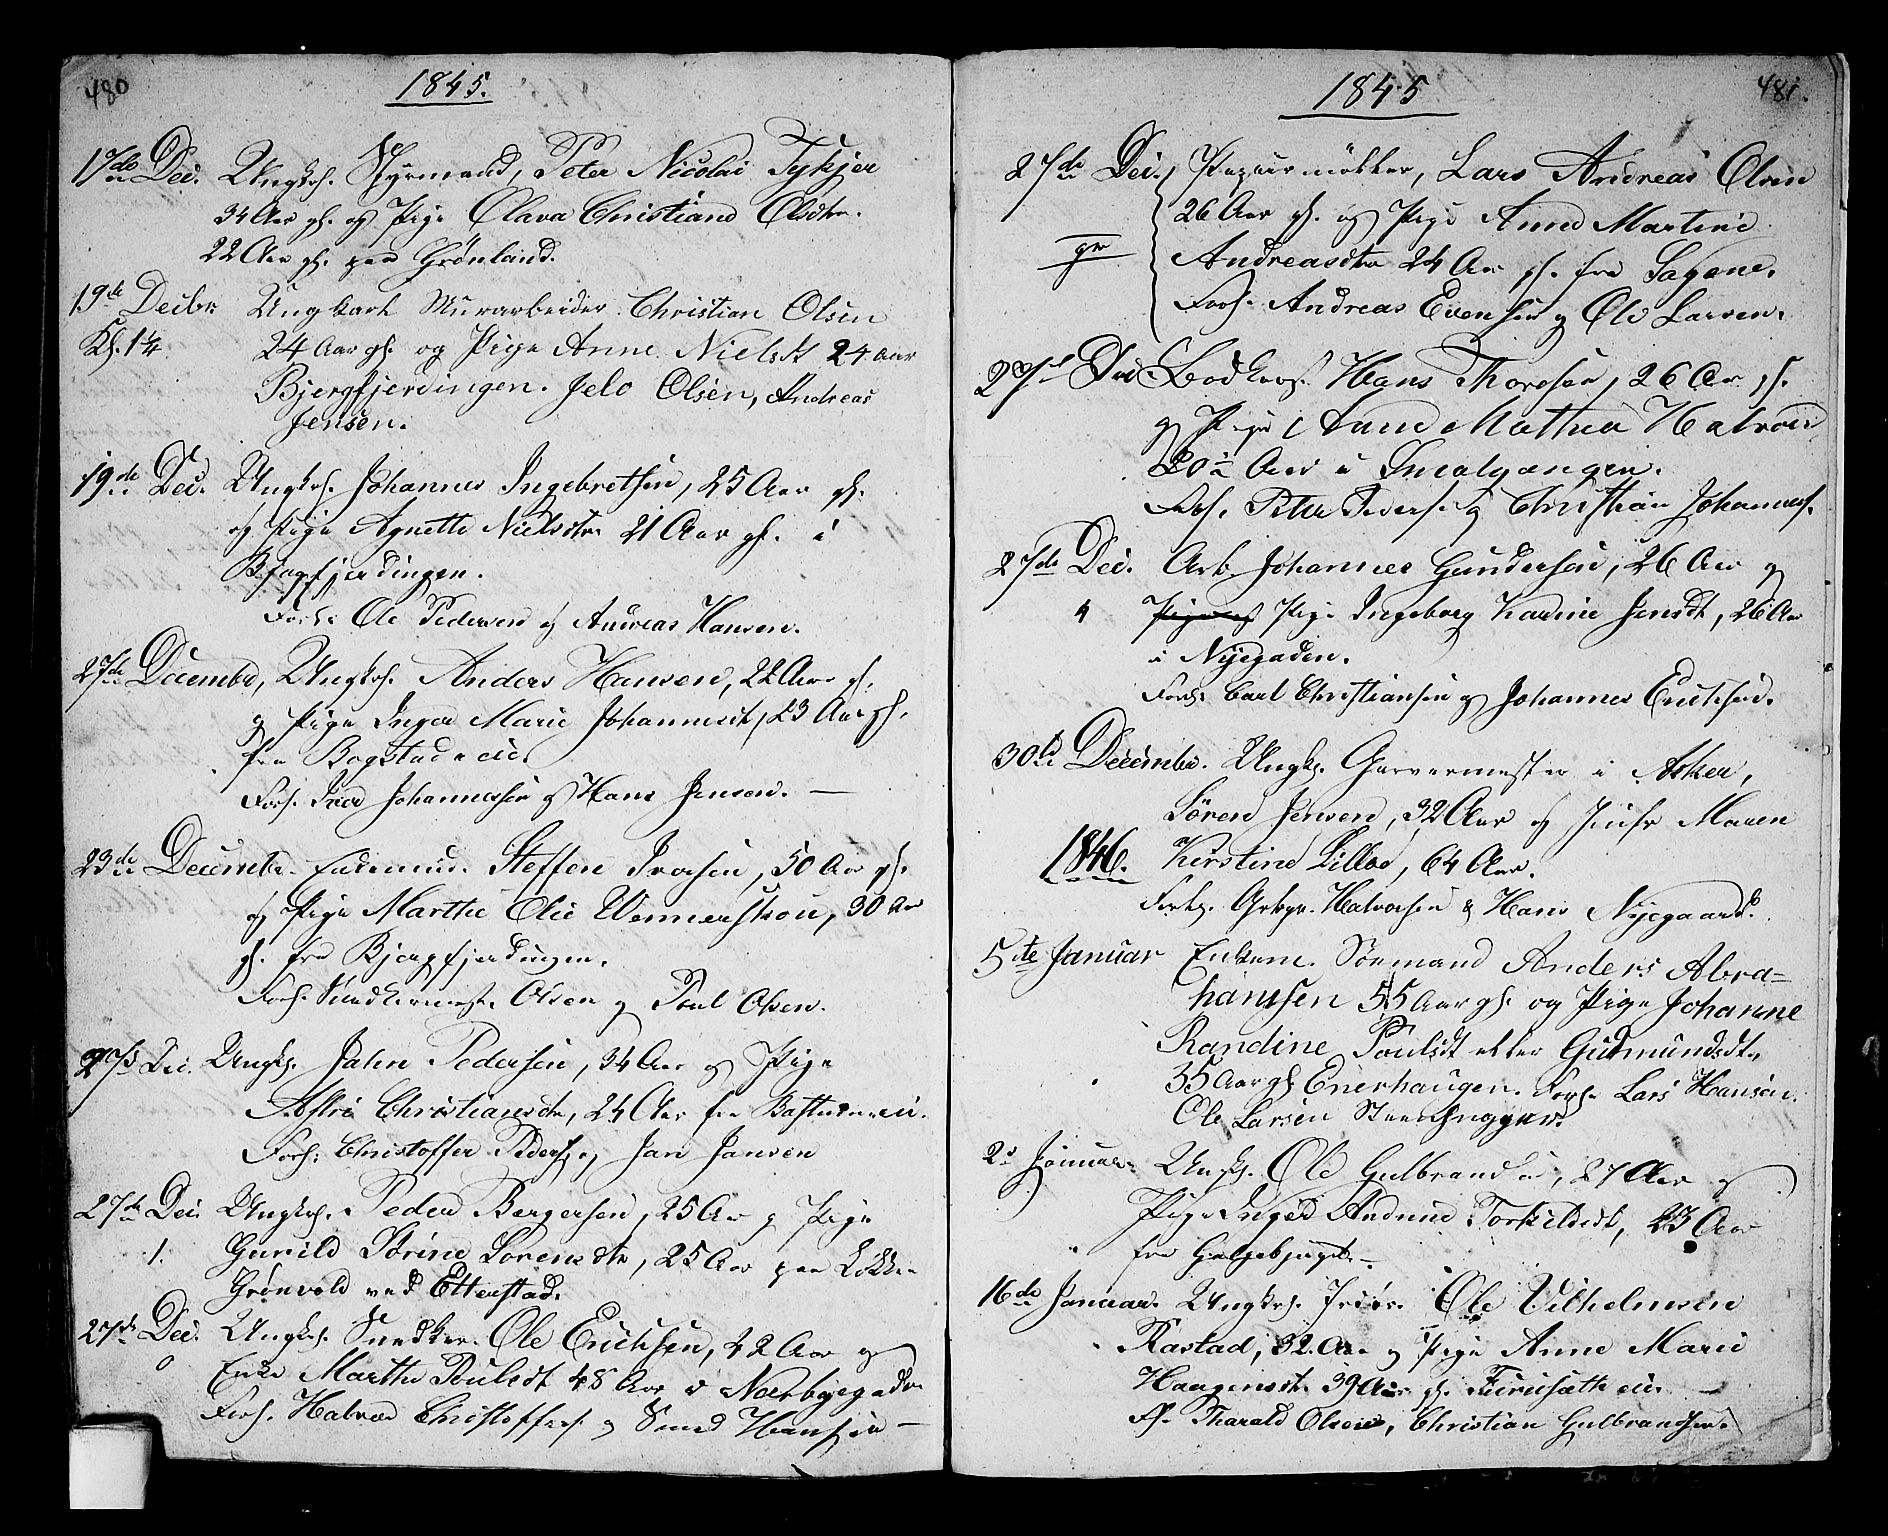 480
1845.
17de Dec. Ungkrl. Styrmand, Peter Nicolai Tykjer
34 Aar gl. og Pige Olava Christiane Olsdtr.
22 Aar gl. paa Grönland.
19de Decbr. Ungkarl Murarbeider Christian Olsen
Kl. 1¼ 24 Aar gl. og Pige Anne Nielsdt 24 Aar
Bjergfjerdingen. Jelo Olsen, Andreas
Jensen.
19de Dec. Ungkrl. Johannes Ingebretsen, 25 Aar gl.
og Pige Agnethe Nielsdtr 21 Aar gl. i
Bjergfjerdingen.
Forl: Ole Pedersen og Andreas Hansen.
27de Decembr, Ungkrl. Anders Hansen, 22 Aar gl.
og Pige Inger Marie Johannesdt, 23 Aar gl.
fra Bogstad eie.
Forl. Iver Johannessen og Hans Jensen. —
23de Decembr. Enkemand Steffen Iversen, 50 Aar gl.
og Pige Marthe Olie Wennerskou, 30 Aar
gl. fra Bjergfjerdingen.
Forl. Snedkermester Olsen og Poul Olsen.
Dec. Ungk. John Pedersen, 34 Aar og Pige
Astri Christiansdtr, 24 Aar fra eie.
Forl: Christoffer Peders. og Jan Jansen
27de Dec Ungkrl. Peder Bergersen, 25 Aar og Pige
1. Gunild Sörine Sorensdtr, 25 Aar paa Lökke
Grönvold ved Etterstad.
27de Dec. Ungkrl. Snedker Ole Erichsen, 42 Aar og
0 Enke Marthe Poulsdt 48 Aar i
Forl. Halvor Christoffers. og Hansen —
481.
1845
27de Dec. Papiirmökker, Lars Andreas Olsen
26 Aar gl. og Pige Anne Martine
gr Andreasdtr 24 Aar gl. fra Sagene.
Forl. Andreas Evensen og Ole Larsen.
27de Dec. Hans Thoresen, 26 Aar gl.
og Pige Anne Mathea Halvors
20½ Aar i Smalgangen.
Forl. Peter Peders. og Christian Johannes.
27de Dec. Arb. Johannes Gundersen, 26 Aar og
4 Pige Ingeborg Karine Jensdt, 26 Aar
i Nyegaden.
Forl: Carl Christiansen og Johannes Erichsen.
30te Decembr. Ungk. Garvermester i Asker,
Sören Jensen, 32 Aar og Jmfr Maren
1846. Kirstine Lilloe, 64 Aar.
Forl. Halvorsen & Hans Nyegaard.
5te Januar Enkem. Sömand Anders Abra-
hamsen 55 Aar gl. og Pige Johanne
Randine Poulsdt eller Gudmundsdtr
35 Aar gl Enerhaugen. Forl. Lars Hansen.
Ole Larsen Steenhugger.
2 Januar Ungk. Ole Gulbrandsen, 27 Aar og
Pige Inger Andrine Torkildsdt, 23 Aar
fra Galgebjerget. —
16de Januar. Ungkrl. Ole Vilhelmsen
Rastad, 32 Aar og Pige Anne Marie
Haagensdt. 39 Aar gl. Furusæth eie. —
Fl. Tharald Olsen, Christian Gulbrandsen.